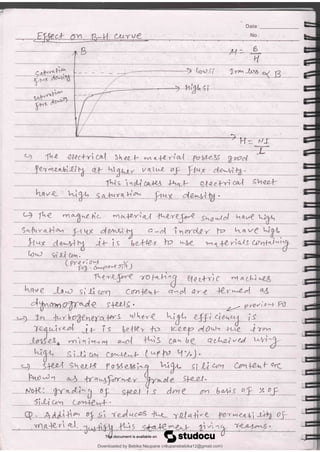 Date
No
Effect on B-H curve
B
μ = B/H
Saturation flux density
→ low Si
Iron loss ∝ B
Saturation flux density
→ High Si
→ H = NI/L
↪ The electrical sheet material possess good
Permeability at higher value of flux density.
This indicates that electrical sheet
have high saturation flux density.
↪ The magnetic material therefore should have high
Saturation flux density and inorder to have high
flux density it is better to use materials containing
low silicon.
(previous
Therefore rotating electric machines
have low silicon content and are termed as
dynamo grade steels.
→ previous PQ
↪ In turbogenerators where high efficiency is
required it is better to keep down the iron
losses, minimum and this can be acheived using
high Silicon content (upto 4%).
↪ Steel sheets possessing high silicon content are
known as transformer grade steel.
Note: grading of steel is done on basis of % of
Silicon content.
Q. Addition of Si reduces the relative permeability of
material, justify this statement giving reasons.
This document is available on studocu
Downloaded by Bebika Neupane (nitupanebebika12@gmail.com)